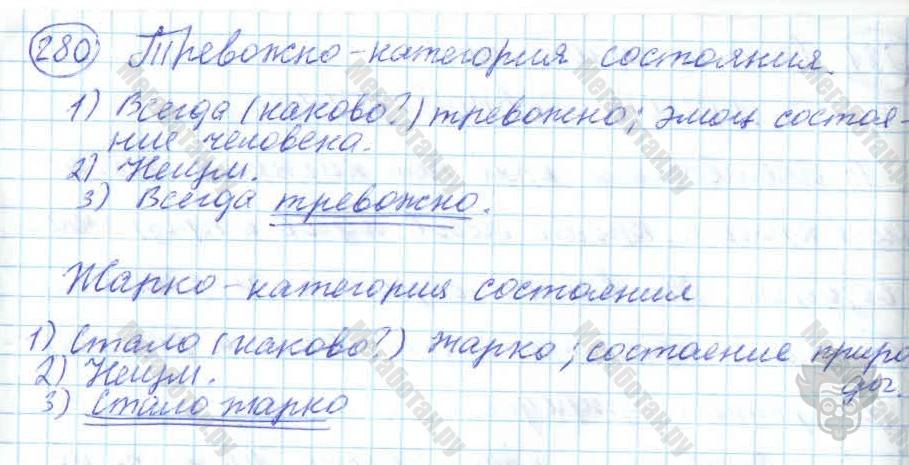 280 Тревожно-категория состояния.
1) Всегда (каково?) тревожно; эмоц. состоя-
ние человека.
2) Неизм.
3) Всегда тревожно.
Жарко-категория состояния
1) Стало (каково?) жарко; состояние приро
ды.
2) Неизм.
3) Стало жарко
Мегаботан.ру